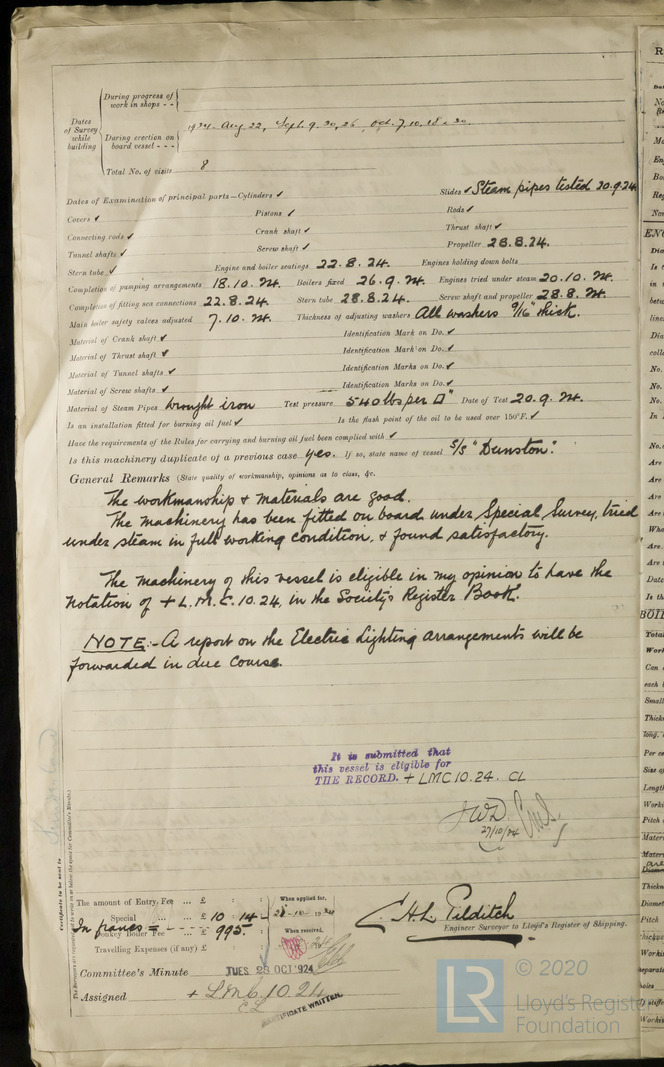 During progress of
work in shops - -
Dates
of Survey
while
building
During erection on
board vessel - - -
1924. Aug 22, Sept. 9. 20, 26, Oct. 7, 10, 18 & 20.
Total No. of visits 8
Dates of Examination of principal parts—Cylinders ✓ Slides ✓ Steam pipes tested 20.9.24.
Covers ✓ Pistons ✓ Rods ✓
Connecting rods ✓ Crank shaft ✓ Thrust shaft ✓
Tunnel shafts ✓ Screw shaft ✓ Propeller 28.8.24.
Stern tube ✓ Engine and boiler seatings 22.8.24. Engines holding down bolts
Completion of pumping arrangements 18.10.24. Boilers fixed 26.9.24. Engines tried under steam 20.10.24.
Completion of fitting sea connections 22.8.24. Stern tube 28.8.24. Screw shaft and propeller 28.8.24.
Main boiler safety valves adjusted 7.10.24. Thickness of adjusting washers All washers 9/16" thick.
Material of Crank shaft ✓ Identification Mark on Do. ✓
Material of Thrust shaft ✓ Identification Mark on Do. ✓
Material of Tunnel shafts ✓ Identification Marks on Do. ✓
Material of Screw shafts ✓ Identification Marks on Do. ✓
Material of Steam Pipes Wrought iron Test pressure 540 lbs per □" Date of Test 20.9.24.
Is an installation fitted for burning oil fuel ✓ Is the flash point of the oil to be used over 150°F. ✓
Have the requirements of the Rules for carrying and burning oil fuel been complied with ✓
Is this machinery duplicate of a previous case yes. If so, state name of vessel S/S "Dunston".
General Remarks (State quality of workmanship, opinions as to class, &c.
The workmanship & materials are good.
The machinery has been fitted on board under Special Survey, tried
under steam in full working condition, & found satisfactory.
The machinery of this vessel is eligible in my opinion to have the
notation of + L.M.C. 10.24. in the Society's Register Book.
NOTE:- A report on the Electric Lighting arrangements will be
forwarded in due course.
It is submitted that
this vessel is eligible for
THE RECORD. + LMC 10.24. CL
JWD
27/10/24
Certificate to be sent to
The amount of Entry Fee ... £ : : When applied for,
Special ... ... £ 10 : 14 -
In francs = - - 995
Donkey Boiler Fee ... £ When received,
Travelling Expenses (if any) £
C.H.L. Tilditch
Engineer Surveyor to Lloyd's Register of Shipping.
Committee's Minute TUES. 28 OCT 1924
Assigned + LMC 10.24
CL
CERTIFICATE WRITTEN.
LR © 2020
Lloyd's Register
Foundation